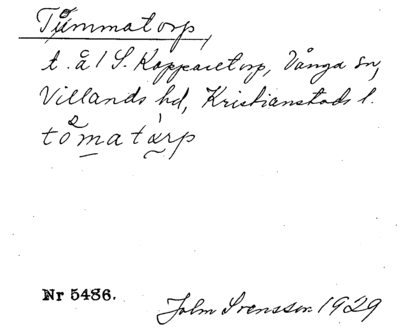 Tåmmatorp,
t. å l S. Kopparetorp, Vånga sn,
Villands hd, Kristianstads l.
tåmatàrp
Nr 5486.
John Svensson 1929